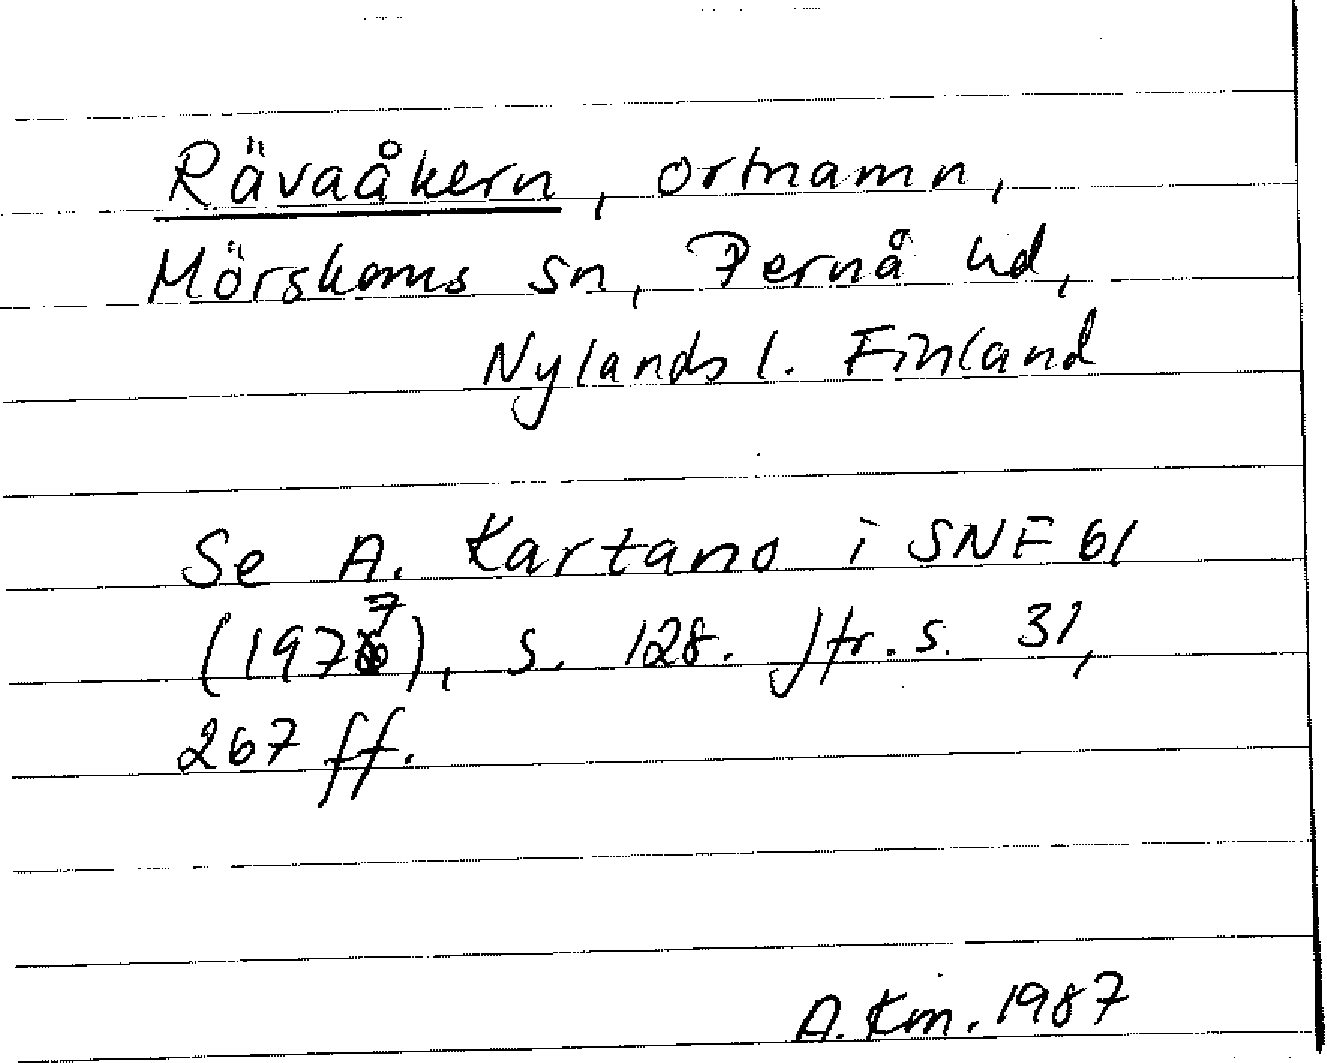 Rävaåkern, ortnamn,
Mörskoms sn, Pernå hd,
Nylands l. Finland
Se A. Kartano i SNF 61
(1977), s. 128. Jfr. s. 31,
267 ff.
A. Km. 1987